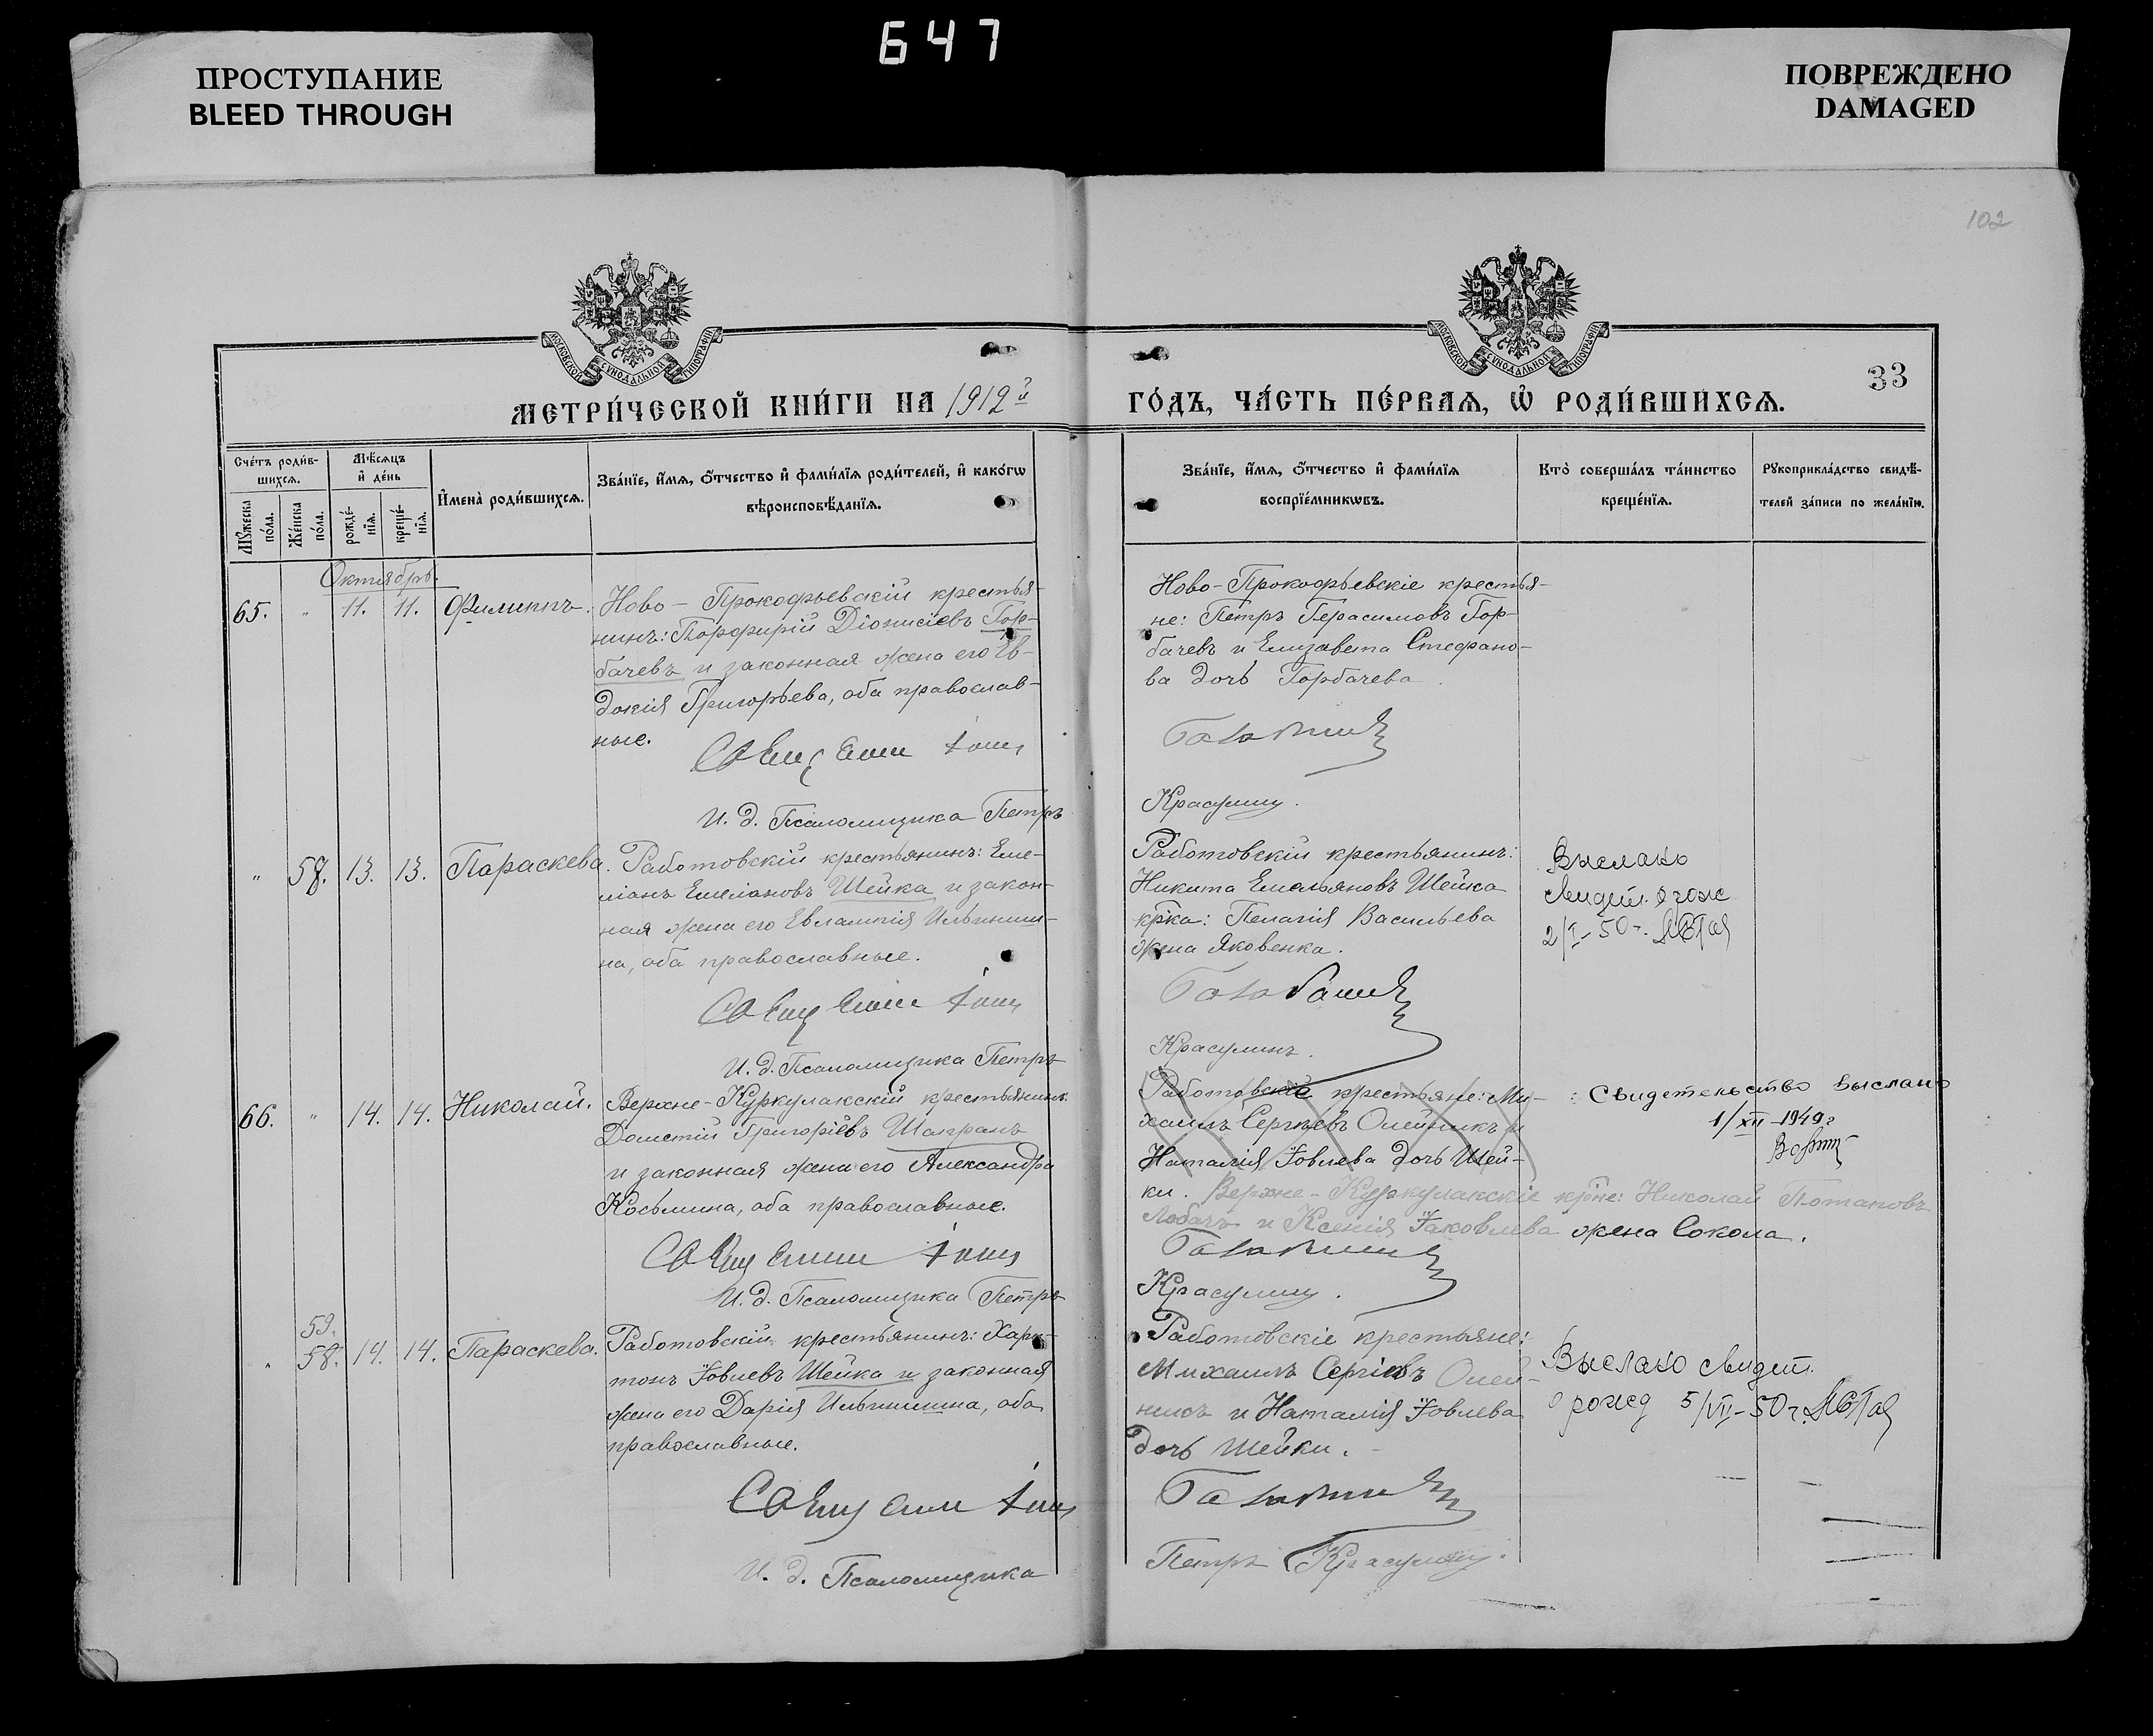 647
ПРОСТУПАНИЕ
BLEED THROUGH
ПОВРЕЖДЕНО
DAMAGED
102
МОСКОВСКОЙ СѴНОДАЛЬНОЙ ТИПОГРАФІИ
МОСКОВСКОЙ СѴНОДАЛЬНОЙ ТИПОГРАФІИ
33
МЕТРИ́ЧЕСКОЙ КНИ́ГИ НА 1912й
ГО́ДЪ, ЧА́СТЬ ПЕ́РВАѦ, Ѡ҆ РОДИ́ВШИХСѦ.
Сче́тъ роди́в-
шихсѧ.
Мꙋ́жеска по́ла.
Же́нска по́ла.
Мѣ́сѧцъ
и҆ де́нь
рожде́-
нїѧ.
креще́-
нїѧ.
И҆мена̀ роди́вшихсѧ.
Зва́нїе, и҆́мѧ, ѻ҆́тчество и҆ фами́лїѧ роди́телей, и҆ како́гѡ
вѣроисповѣ́данїѧ.
Зва́нїе, и҆́мѧ, ѻ҆́тчество и҆ фами́лїѧ
воспрїе́мникѡвъ.
Кто̀ соверша́лъ та́инство
креще́нїѧ.
Рꙋкоприкла́дство свидѣ́-
телей за́писи по жела́нїю.
Октябрь.
65. " 11. 11. Филиппъ.
Ново-Прокофьевскій крестья-
нинъ: Порфирій Діонисіевъ Гор-
бачевъ и законная жена его Ев-
докія Григорьева, оба православ-
ные.
И. д. Псаломщика Петръ
Ново-Прокофьевскіе крестья-
не: Петръ Герасимовъ Гор-
бачевъ и Елизавета Стефано-
ва дочь Горбачева.
Красулинъ.
" 58. 13. 13. Параскева.
Работовскій крестьянинъ: Еме-
ліанъ Емеліановъ Шейка и закон-
ная жена его Евлампія Ильинич-
на, оба православные.
И. д. Псаломщика Петръ
Работовскій крестьянинъ:
Никита Емельяновъ Шейка
кр-ка: Пелагія Васильева
жена Яковенка.
Красулинъ.
Выслано
свидет. о рож
2/I-50г.
66. " 14. 14. Николай.
Верхне-Куркулакскій крестьянинъ
Дометій Григоріевъ Шапранъ
и законная жена его Александра
Косьмина, оба православные.
И. д. Псаломщика Петръ
Работовскіе крестьяне: Ми-
хаилъ Сергѣевъ Олейникъ и
Наталія Іовлева дочь Шей-
ки. Верхне-Куркулакскіе кр-не: Николай Потаповъ
Лобачъ и Ксенія Іаковлева жена Сокола.
Красулинъ.
Свидетельство выслано
1/XII-1949г
59.
" 58. 14. 14. Параскева.
Работовскій крестьянинъ: Хари-
тонъ Іовлевъ Шейка и законная
жена его Дарія Ильинична, оба
православные.
И. д. Псаломщика
Работовскіе крестьяне:
Михаилъ Сергіевъ Олей-
никъ и Наталія Іовлева
дочь Шейки.
Петръ Красулинъ.
Выслано свидет.
о рожд 5/VII-50г.